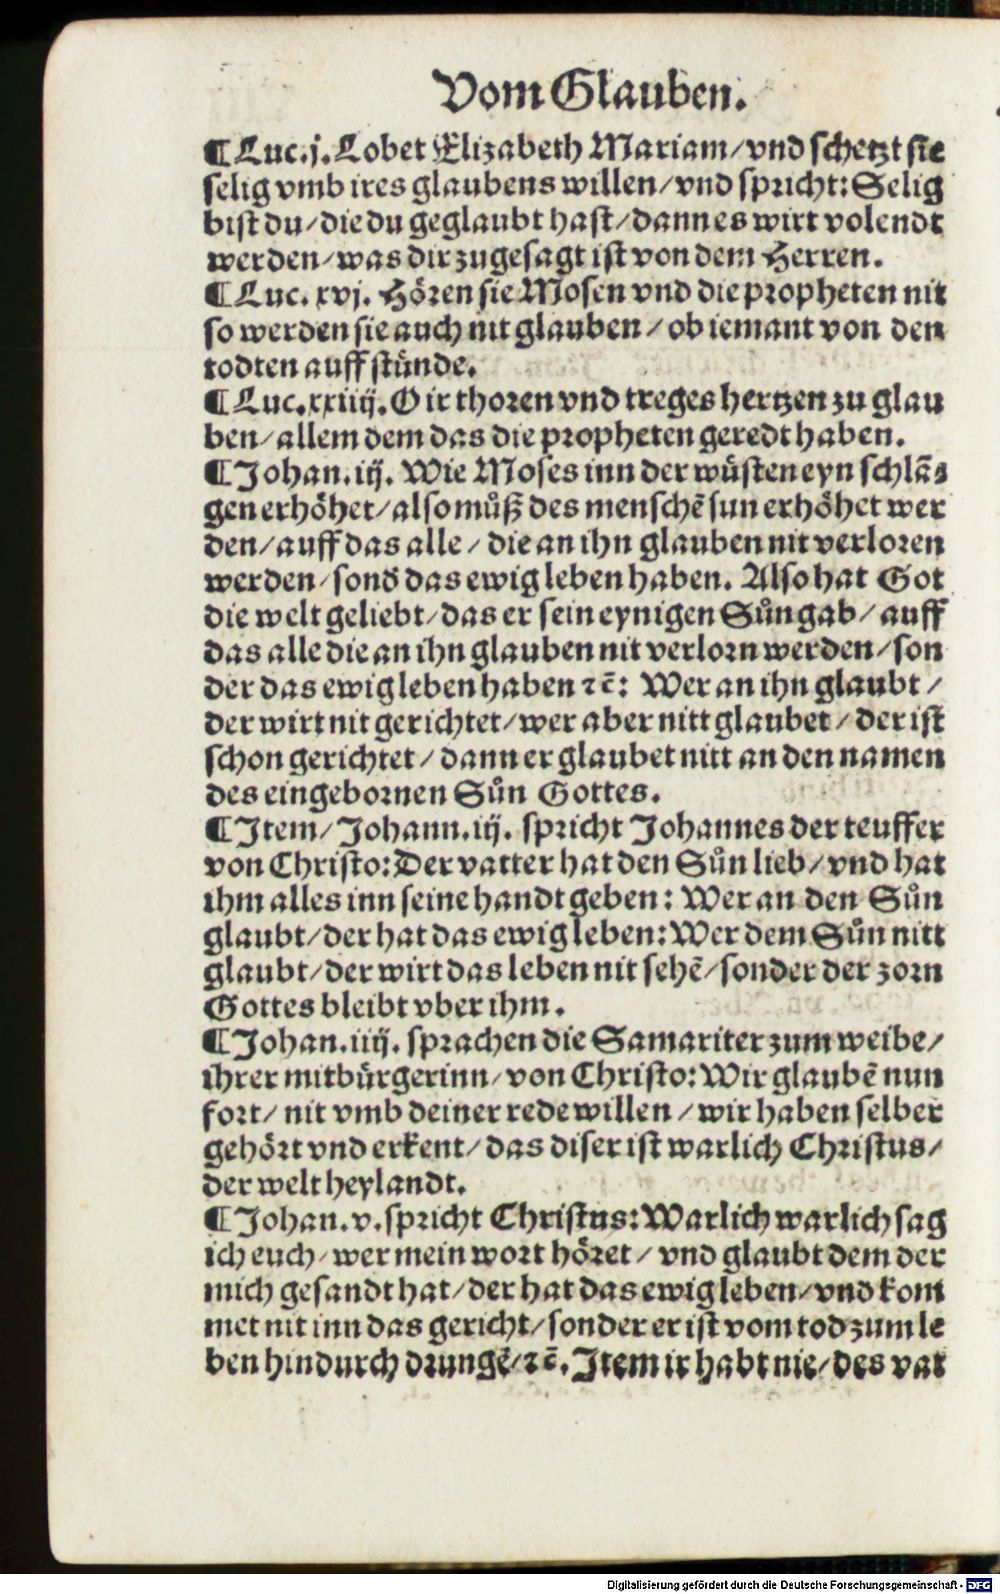 Vom Glauben.
¶ Luc. j. Lobet Elizabeth Mariam/ vnd schetzt sie
selig vmb ires glaubens willen/ vnd spricht: Selig
bist du/ die du geglaubt hast/ dann es wirt volendt
werden/ was dir zugesagt ist von dem Herren.
¶ Luc. xvj. Hören sie Mosen vnd die propheten nit
so werden sie auch nit glauben/ ob iemant von den
todten auff stünde.
¶ Luc. xxiiij. O ir thoren vnd treges hertzen zu glau
ben/ allem dem das die propheten geredt haben.
¶ Johan. iij. Wie Moses inn der wüsten eyn schlã⸗
gen erhöhet/ also můß des menschẽ sun erhöhet wer
den/ auff das alle/ die an ihn glauben nit verloren
werden/ sond̃ das ewig leben haben. Also hat Got
die welt geliebt/ das er sein eynigen Sůn gab/ auff
das alle die an ihn glauben nit verlorn werden/ son
der das ewig leben haben ⁊c̃: Wer an ihn glaubt/
der wirt nit gerichtet/ wer aber nitt glaubet/ der ist
schon gerichtet/ dann er glaubet nitt an den namen
des eingebornen Sůn Gottes.
¶ Item/ Johann. iij. spricht Johannes der teuffer
von Christo: Der vatter hat den Sůn lieb/ vnd hat
ihm alles inn seine handt geben: Wer an den Sůn
glaubt/ der hat das ewig leben: Wer dem Sůn nitt
glaubt/ der wirt das leben nit sehẽ/ sonder der zorn
Gottes bleibt vber ihm.
¶ Johan. iiij. sprachen die Samariter zum weibe/
ihrer mitbürgerinn/ von Christo: Wir glaubẽ nun
fort/ nit vmb deiner rede willen/ wir haben selber
gehört vnd erkent/ das diser ist warlich Christus/
der welt heylandt.
¶ Johan. v. spricht Christus: Warlich warlich sag
ich euch/ wer mein wort höret/ vnd glaubt dem der
mich gesandt hat/ der hat das ewig leben/ vnd kom
met nit inn das gericht/ sonder er ist vom tod zum le
ben hindurch drungẽ/ ⁊c̃. Item ir habt nie/ des vat
Digitalisierung gefördert durch die Deutsche Forschungsgemeinschaft - DFG